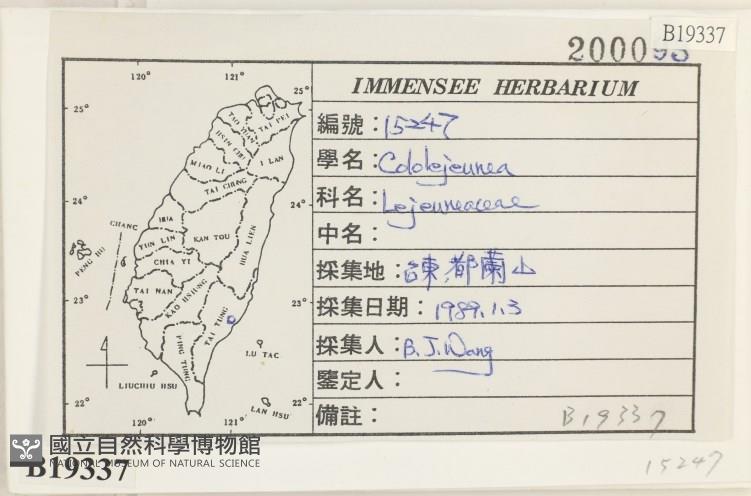 B19337
2000
IMMENSEE HERBARIUM
編號：15247
學名：Cololejeunea
科名：Lejeuneaceae
中名：
採集地：台東,都蘭山
採集日期：1989.1.3
採集人：B.J.Wang
鑒定人：
備註：
B19337
15247
120° 121°
25° 25°
TAO YUAN TAI PEI
HSIN CHU
MIAO LI I LAN
TAI CHUNG
24° 24°
CHANG HUA
YUN LIN KAN TOU HUA LIEN
PENG HU
CHIA YI
TAI NAN
23° KAO HSIUNG 23°
TAI TUNG
PING TUNG
LU TAC
LIUCHIU HSU
22° LAN HSU 22°
120° 121°
國立自然科學博物館
NATIONAL MUSEUM OF NATURAL SCIENCE
B19337